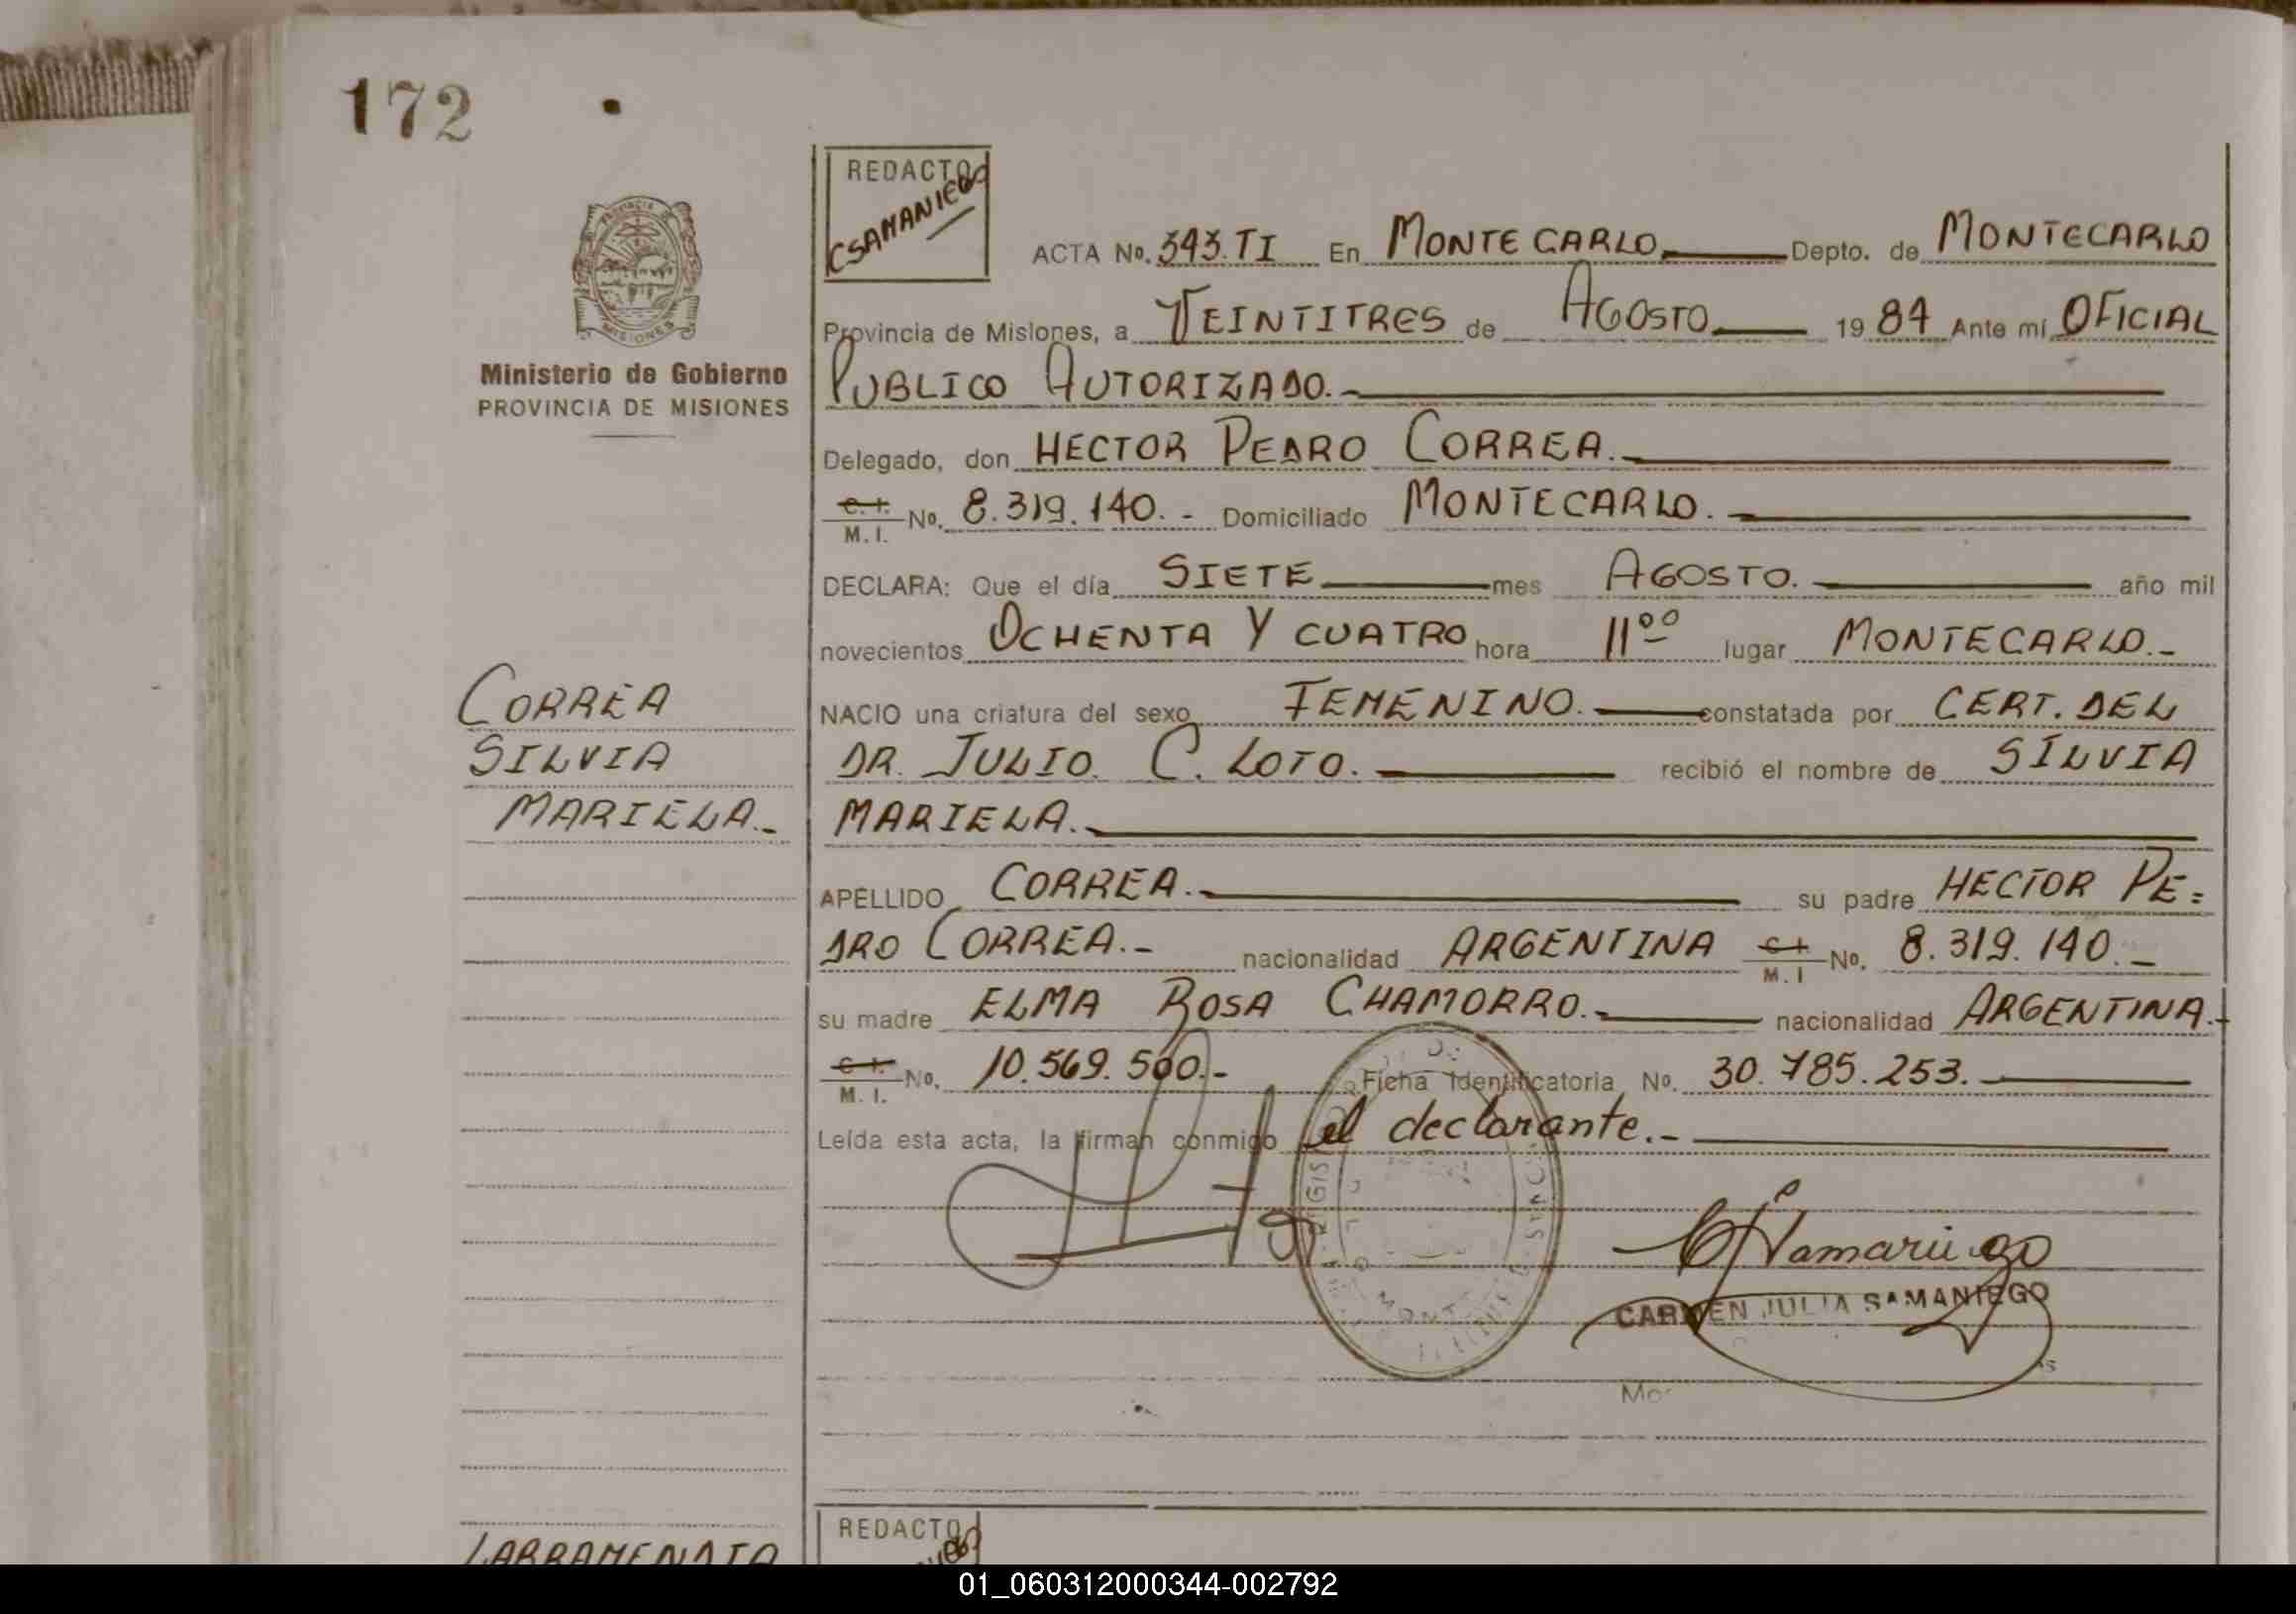 172
REDACTO
CSAMANIEGO
ACTA No. 343.TI En MONTECARLO Depto. de MONTECARLO
Provincia de Misiones, a VEINTITRES de AGOSTO 1984 Ante mí OFICIAL
Ministerio de Gobierno
PROVINCIA DE MISIONES
PUBLICO AUTORIZADO.-
Delegado, don HECTOR PEDRO CORREA.-
C. I. M. I. No. 8.319.140.- Domiciliado MONTECARLO.-
DECLARA: Que el día SIETE mes AGOSTO. año mil
novecientos OCHENTA Y CUATRO hora 11⁰⁰ lugar MONTECARLO.-
CORREA
SILVIA
MARIELA.-
NACIO una criatura del sexo FEMENINO. constatada por CERT. DEL
DR. JULIO C. LOTO. recibió el nombre de SILVIA
MARIELA.-
APELLIDO CORREA.- su padre HECTOR PE=
DRO CORREA.- nacionalidad ARGENTINA C I M. I No. 8.319.140.-
su madre ELMA ROSA CHAMORRO.- nacionalidad ARGENTINA.-
C I. M. I. No. 10.569.500.- Ficha Identificatoria No. 30.785.253.-
Leída esta acta, la firman conmigo el declarante.-
CJSamaniego
CARMEN JULIA SAMANIEGO
REDACTO
01_060312000344-002792